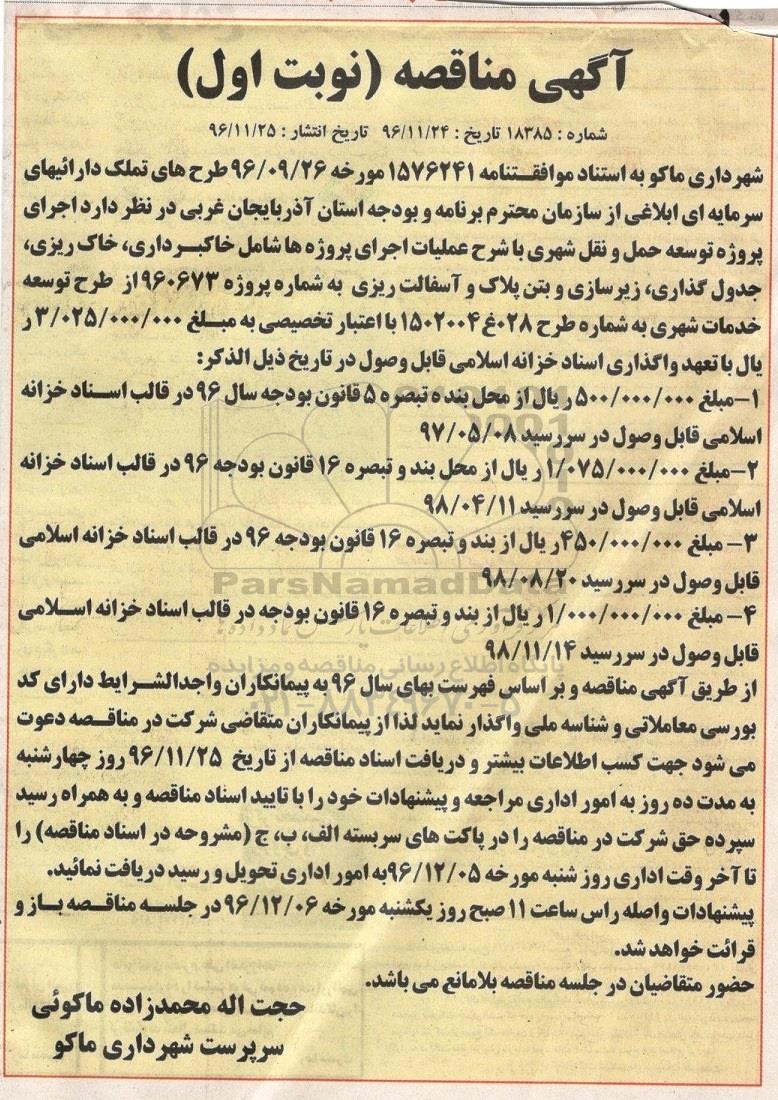 آگهی مناقصه (نوبت اول)
شماره : ۱۸۳۸۵ تاریخ : ۹۶/۱۱/۲۴ تاریخ انتشار : ۹۶/۱۱/۲۵
شهرداری ماکو به استناد موافقتنامه ۱۵۷۶۲۴۱ مورخه ۹۶/۰۹/۲۶ طرح های تملک دارائیهای
سرمایه ای ابلاغی از سازمان محترم برنامه و بودجه استان آذربایجان غربی در نظر دارد اجرای
پروژه توسعه حمل و نقل شهری با شرح عملیات اجرای پروژه ها شامل خاکبرداری، خاک ریزی،
جدول گذاری، زیرسازی و بتن پلاک و آسفالت ریزی به شماره پروژه ۹۶۰۶۷۳ از طرح توسعه
خدمات شهری به شماره طرح ۰۲۸غ۱۵۰۲۰۰۴ با اعتبار تخصیصی به مبلغ ۳/۰۲۵/۰۰۰/۰۰۰ ر
یال با تعهد واگذاری اسناد خزانه اسلامی قابل وصول در تاریخ ذیل الذکر:
۱-مبلغ ۵۰۰/۰۰۰/۰۰۰ ریال از محل بنده تبصره ۵ قانون بودجه سال ۹۶ در قالب اسناد خزانه
اسلامی قابل وصول در سررسید ۹۷/۰۵/۰۸
۲-مبلغ ۱/۰۷۵/۰۰۰/۰۰۰ ریال از محل بند و تبصره ۱۶ قانون بودجه ۹۶ در قالب اسناد خزانه
اسلامی قابل وصول در سررسید ۹۸/۰۴/۱۱
۳- مبلغ ۴۵۰/۰۰۰/۰۰۰ریال از بند و تبصره ۱۶ قانون بودجه ۹۶ در قالب اسناد خزانه اسلامی
قابل وصول در سررسید ۹۸/۰۸/۲۰
۴- مبلغ ۱/۰۰۰/۰۰۰/۰۰۰ ریال از بند و تبصره ۱۶ قانون بودجه در قالب اسناد خزانه اسلامی
قابل وصول در سررسید ۹۸/۱۱/۱۴
از طریق آگهی مناقصه و بر اساس فهرست بهای سال ۹۶ به پیمانکاران واجدالشرایط دارای کد
بورسی معاملاتی و شناسه ملی واگذار نماید لذا از پیمانکاران متقاضی شرکت در مناقصه دعوت
می شود جهت کسب اطلاعات بیشتر و دریافت اسناد مناقصه از تاریخ ۹۶/۱۱/۲۵ روز چهارشنبه
به مدت ده روز به امور اداری مراجعه و پیشنهادات خود را با تایید اسناد مناقصه و به همراه رسید
سپرده حق شرکت در مناقصه را در پاکت های سربسته الف، ب، ج (مشروحه در اسناد مناقصه) را
تا آخر وقت اداری روز شنبه مورخه ۹۶/۱۲/۰۵به امور اداری تحویل و رسید دریافت نمائید.
پیشنهادات واصله راس ساعت ۱۱ صبح روز یکشنبه مورخه ۹۶/۱۲/۰۶ در جلسه مناقصه باز و
قرائت خواهد شد.
حضور متقاضیان در جلسه مناقصه بلامانع می باشد.
حجت اله محمدزاده ماکوئی
سرپرست شهرداری ماکو
ParsNamadData
پایگاه اطلاع رسانی مناقصه و مزایده
۰۲۱-۸۸۳۴۹۶۷۰-۵